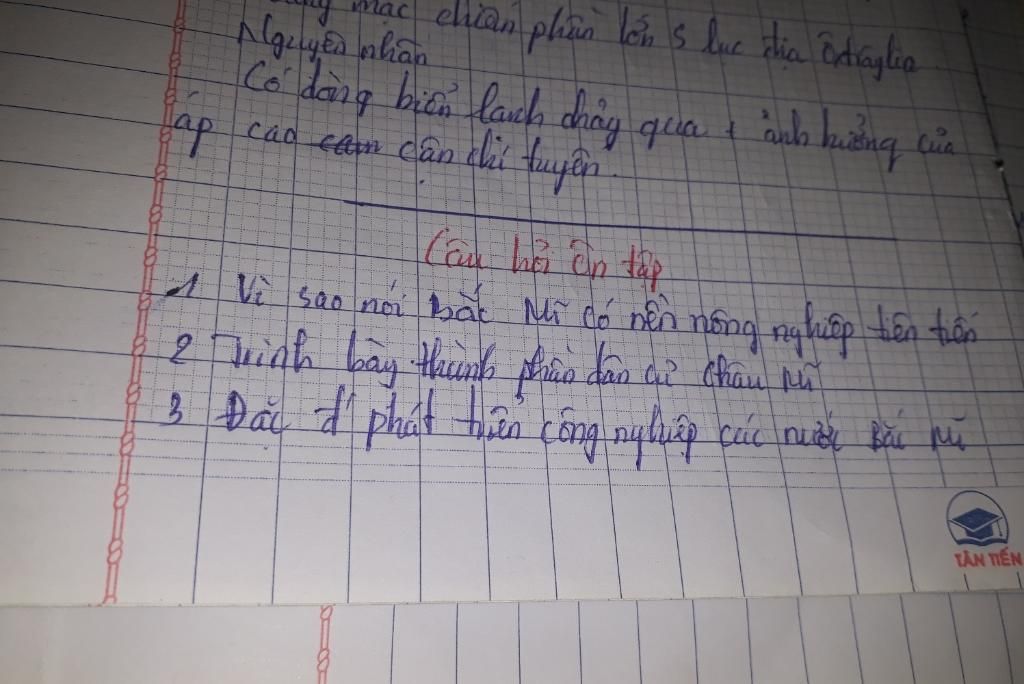 mạc chiếm phần lớn S lục địa Ôxtraylia
Nguyên nhân
Có dòng biển lạnh chảy qua + ảnh hưởng của
áp cao cận chí tuyến.
Câu hỏi ôn tập
1 Vì sao nói Bắc Mĩ có nền nông nghiệp tiên tiến
2 Trình bày thành phần dân cư châu Mĩ
3 Đặc đ' phát triển công nghiệp các nước Bắc Mĩ
TÂN TIẾN